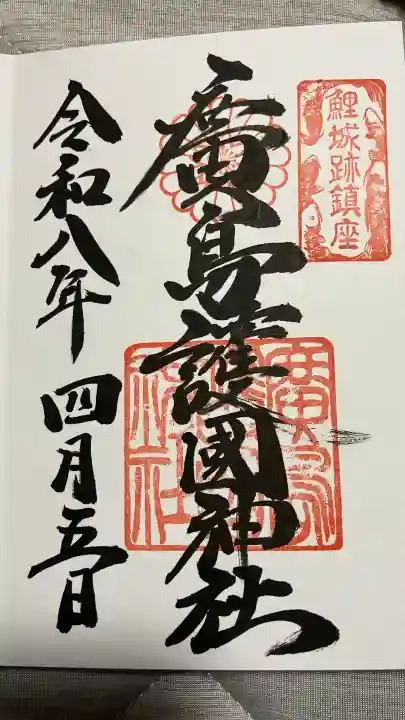 鯉城跡鎮座
廣島護國神社
令和八年 四月五日